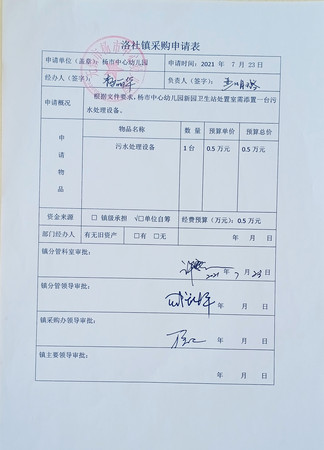 洛社镇采购申请表
申请单位（盖章）：杨市中心幼儿园 申请时间：2021 年 7 月 23 日
经办人（签字）： 负责人（签字）：
申请概况 根据文件要求，杨市中心幼儿园新园卫生站处置室需添置一台污
水处理设备。
申请物品 物品名称 数 量 预算单价 预算总价
污水处理设备 1 台 0.5 万元 0.5 万元
资金来源 □ 镇级承担 √□单位自筹 经费预算（万元）：0.5 万元
部门经办人 有无旧资产 □ 有 □ 无 年 月 日
镇分管科室审批：
2021 年 7 月 23 日
镇分管领导审批：
年 月 日
镇采购办领导审批：
年 月 日
镇主要领导审批：
年 月 日